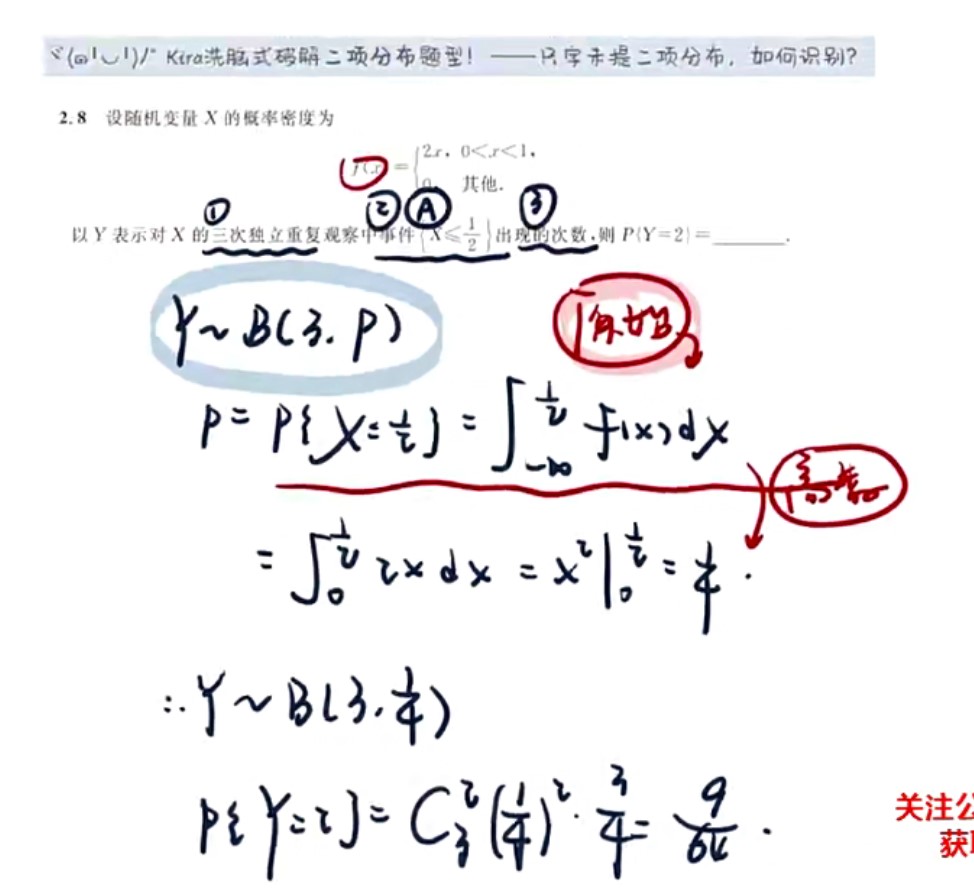 ヾ(๑╹◡╹)ﾉ" Kira洗脑式码解二项分布题型！——只字未提二项分布，如何识别？
2.8 设随机变量 X 的概率密度为
f(x) = { 2x, 0<x<1,
0, 其他.
① ② Ⓐ ③
以 Y 表示对 X 的三次独立重复观察中事件{X≤1/2}出现的次数,则 P{Y=2}=______.
Y~B(3, P)
P = P{X≤1/2} = ∫_{-∞}^{1/2} f(x)dx
= ∫_0^{1/2} 2x dx = x²|_0^{1/2} = 1/4.
∴ Y~B(3, 1/4)
P{Y=2} = C_3^2 (1/4)^2 · 3/4 = 9/64.
关注公
获